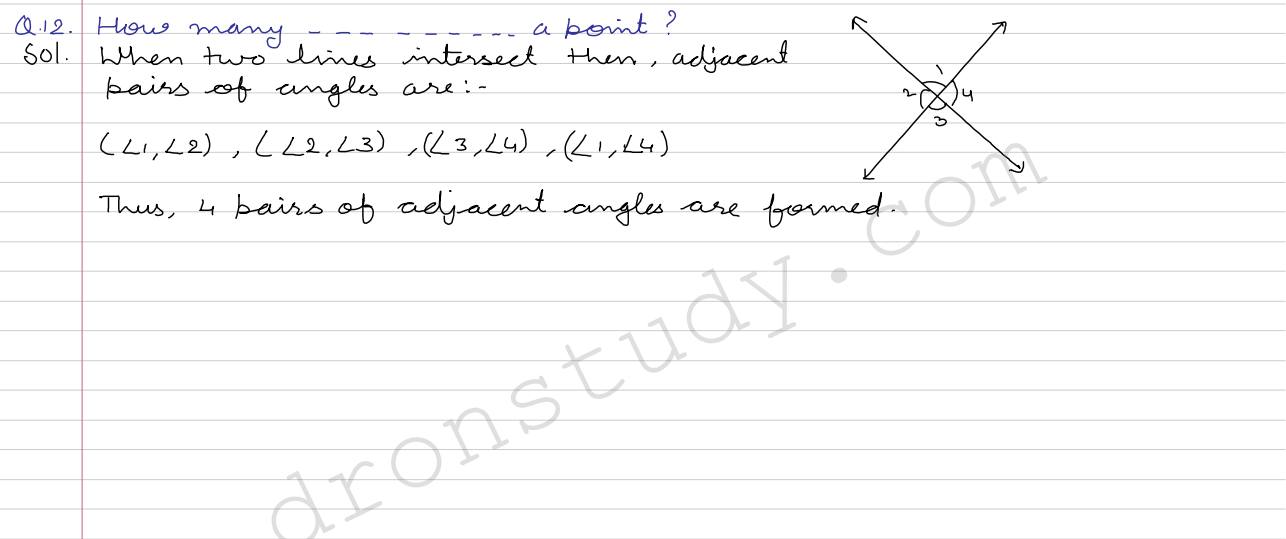 Q.12. How many _ _ _ _ _ _ _ _ _ a point ?
Sol. When two lines intersect then, adjacent
pairs of angles are:-
(∠1,∠2) , (∠2,∠3) ,(∠3,∠4) , (∠1,∠4)
Thus, 4 pairs of adjacent angles are formed.
1
2
4
3
dronstudy.com